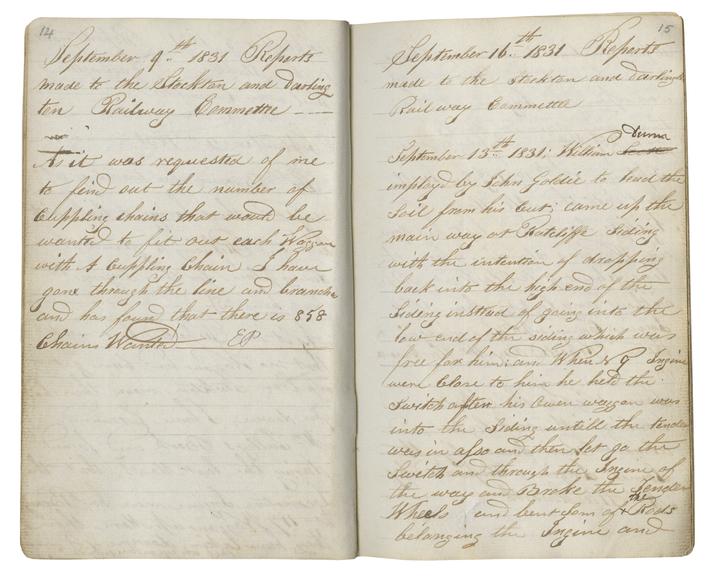 14
September 9th 1831 Reports
made to the Stockton and Darling
ton Railway Commettee
As it was requested of me
to find out the number of
Cuppling chains that would be
wanted to fit out each Waggon
with A Cuppling Chain I have
gone through the line and branche
and has found that there is 858
Chains Wanted EP
15
September 16th 1831 Reports
made to the Stockton and Darlingto
Railway Commettee
September 13th 1831; William
imployd by John Goldie to lead the
Soil from his Cut; came up the
main way at Ratcliffe Siding
with the intention of dropping
back into the high end of the
Siding instead of going into the
low end of the siding which was
free for him; and When No 7 Ingine
were Close to him he held the
Switch after his Owen waggon was
into the Siding untill the tender
was in also and then let go the
Switch and through the Ingine of
the way and Broke the Tender
Wheels and bent som of the Rods
belanging the Ingine and